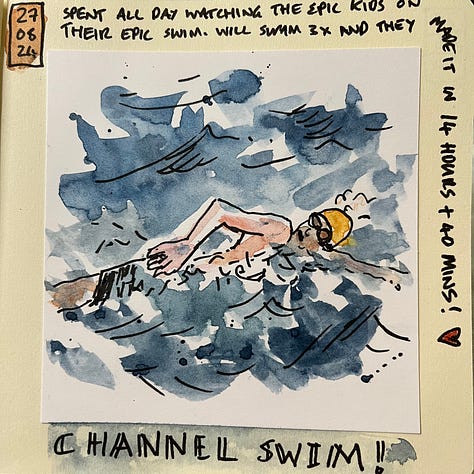 27
08
24
SPENT ALL DAY WATCHING THE EPIC KIDS ON
THEIR EPIC SWIM. WILL SWAM 3X AND THEY
MADE IT IN 14 HOURS + 40 MINS!
CHANNEL SWIM!